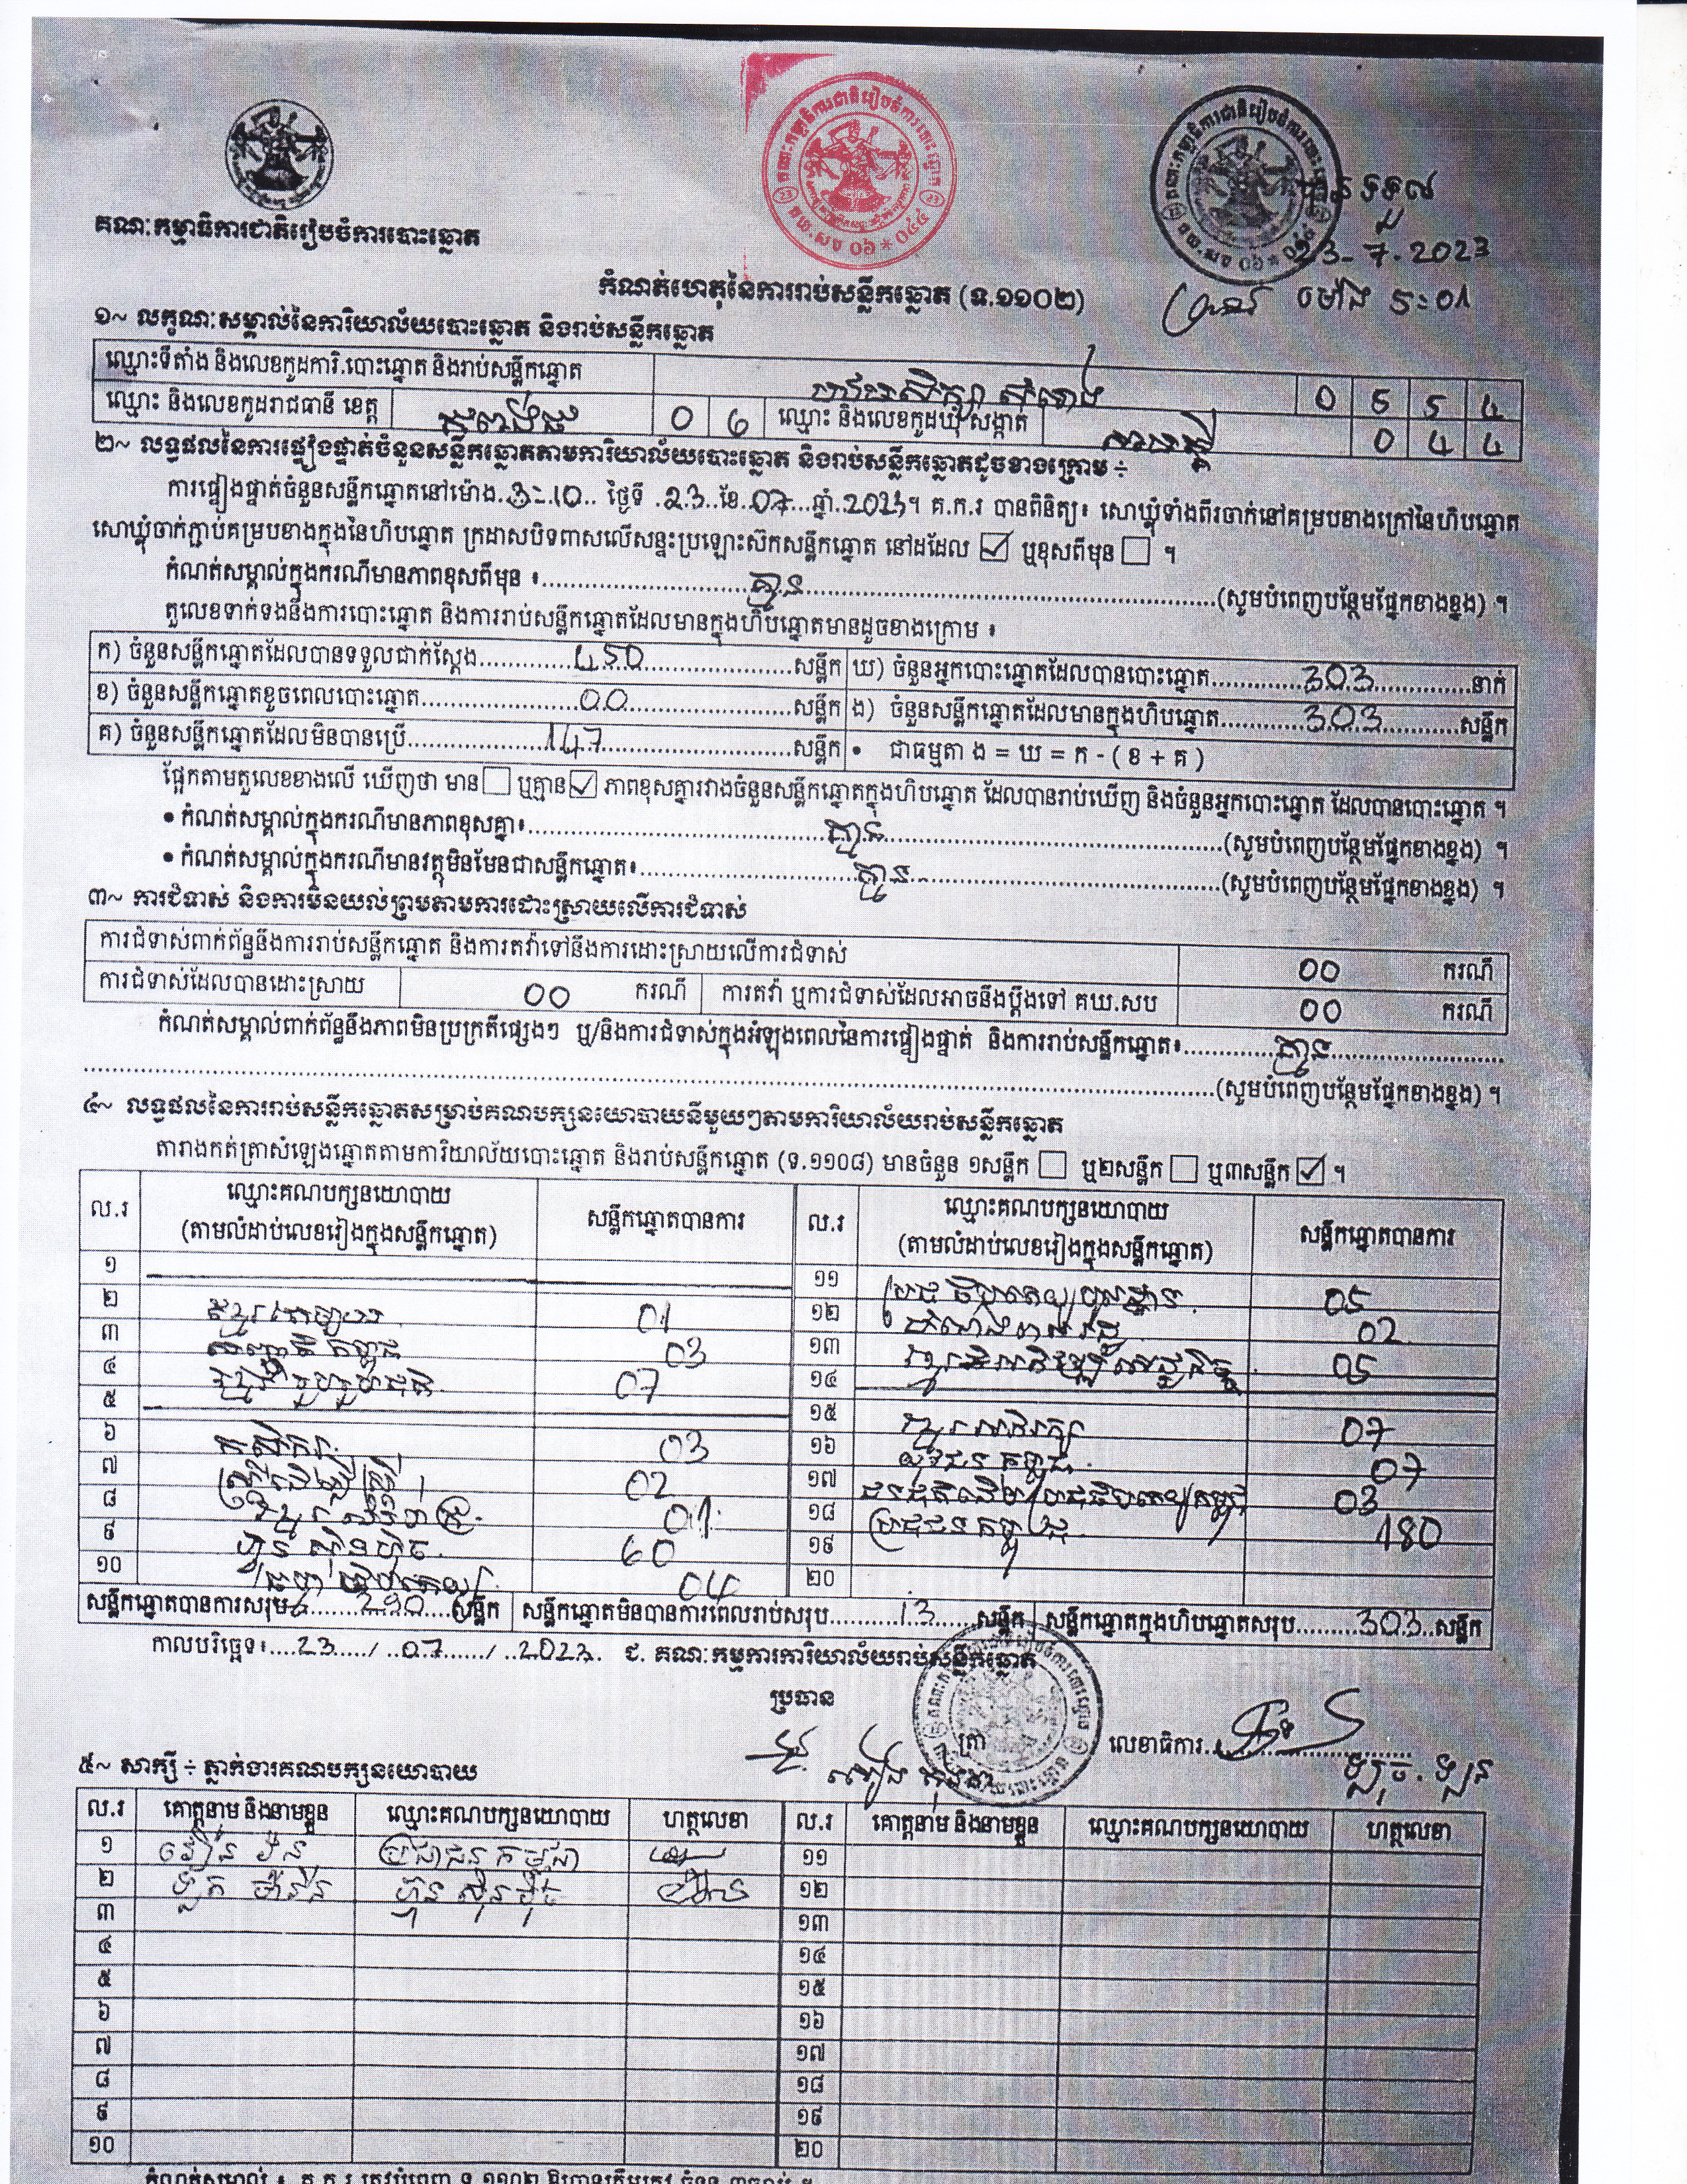 គណៈកម្មាធិការជាតិរៀបចំការបោះឆ្នោត
23-7-2023
ម៉ោង 5:01
កំណត់ហេតុនៃការរាប់សន្លឹកឆ្នោត (ទ.១១០២)
១~ លក្ខណៈសម្គាល់នៃការិយាល័យបោះឆ្នោត និងរាប់សន្លឹកឆ្នោត
ឈ្មោះទីតាំង និងលេខកូដការិ.បោះឆ្នោត និងរាប់សន្លឹកឆ្នោត 0 5 5 4
ឈ្មោះ និងលេខកូដរាជធានី ខេត្ត កំពង់ធំ 0 6 ឈ្មោះ និងលេខកូដឃុំ សង្កាត់ 0 4 4
២~ លទ្ធផលនៃការផ្ទៀងផ្ទាត់ចំនួនសន្លឹកឆ្នោតតាមការិយាល័យបោះឆ្នោត និងរាប់សន្លឹកឆ្នោតដូចខាងក្រោម ÷
ការផ្ទៀងផ្ទាត់ចំនួនសន្លឹកឆ្នោតនៅម៉ោង 3-10 ថ្ងៃទី 23 ខែ 07 ឆ្នាំ 2023។ គ.ក.រ បានពិនិត្យ៖ សោឃ្លុំទាំងពីរចាក់នៅគម្របខាងក្រៅនៃហិបឆ្នោត
សោឃ្លុំចាក់ភ្ជាប់គម្របខាងក្នុងនៃហិបឆ្នោត ក្រដាសបិទពាសលើសន្ទះប្រឡោះស៊កសន្លឹកឆ្នោត នៅដដែល ☑ ឬខុសពីមុន ☐ ។
កំណត់សម្គាល់ក្នុងករណីមានភាពខុសពីមុន ៖ គ្មាន (សូមបំពេញបន្ថែមផ្នែកខាងខ្នង) ។
តួលេខទាក់ទងនឹងការបោះឆ្នោត និងការរាប់សន្លឹកឆ្នោតដែលមានក្នុងហិបឆ្នោតមានដូចខាងក្រោម ៖
ក) ចំនួនសន្លឹកឆ្នោតដែលបានទទួលជាក់ស្តែង 450 សន្លឹក ឃ) ចំនួនអ្នកបោះឆ្នោតដែលបានបោះឆ្នោត 303 នាក់
ខ) ចំនួនសន្លឹកឆ្នោតខូចពេលបោះឆ្នោត 00 សន្លឹក ង) ចំនួនសន្លឹកឆ្នោតដែលមានក្នុងហិបឆ្នោត 303 សន្លឹក
គ) ចំនួនសន្លឹកឆ្នោតដែលមិនបានប្រើ 147 សន្លឹក • ជាធម្មតា ង = ឃ = ក - ( ខ + គ )
ផ្អែកតាមតួលេខខាងលើ ឃើញថា មាន ☐ ឬគ្មាន ☑ ភាពខុសគ្នារវាងចំនួនសន្លឹកឆ្នោតក្នុងហិបឆ្នោត ដែលបានរាប់ឃើញ និងចំនួនអ្នកបោះឆ្នោត ដែលបានបោះឆ្នោត ។
• កំណត់សម្គាល់ក្នុងករណីមានភាពខុសគ្នា៖ គ្មាន (សូមបំពេញបន្ថែមផ្នែកខាងខ្នង) ។
• កំណត់សម្គាល់ក្នុងករណីមានវត្ថុមិនមែនជាសន្លឹកឆ្នោត៖ គ្មាន (សូមបំពេញបន្ថែមផ្នែកខាងខ្នង) ។
៣~ ការជំទាស់ និងការមិនយល់ព្រមតាមការដោះស្រាយលើការជំទាស់
ការជំទាស់ពាក់ព័ន្ធនឹងការរាប់សន្លឹកឆ្នោត និងការតវ៉ាទៅនឹងការដោះស្រាយលើការជំទាស់ 00 ករណី
ការជំទាស់ដែលបានដោះស្រាយ 00 ករណី ការតវ៉ា ឬការជំទាស់ដែលអាចនឹងប្តឹងទៅ គឃ.សប 00 ករណី
កំណត់សម្គាល់ពាក់ព័ន្ធនឹងភាពមិនប្រក្រតីផ្សេងៗ ឬ/និងការជំទាស់ក្នុងអំឡុងពេលនៃការផ្ទៀងផ្ទាត់ និងការរាប់សន្លឹកឆ្នោត៖ គ្មាន
(សូមបំពេញបន្ថែមផ្នែកខាងខ្នង) ។
៤~ លទ្ធផលនៃការរាប់សន្លឹកឆ្នោតសម្រាប់គណបក្សនយោបាយនីមួយៗតាមការិយាល័យរាប់សន្លឹកឆ្នោត
តារាងកត់ត្រាសំឡេងឆ្នោតតាមការិយាល័យបោះឆ្នោត និងរាប់សន្លឹកឆ្នោត (ទ.១១០៨) មានចំនួន ១សន្លឹក ☐ ឬ២សន្លឹក ☐ ឬ៣សន្លឹក ☑ ។
ល.រ ឈ្មោះគណបក្សនយោបាយ (តាមលំដាប់លេខរៀងក្នុងសន្លឹកឆ្នោត) សន្លឹកឆ្នោតបានការ ល.រ ឈ្មោះគណបក្សនយោបាយ (តាមលំដាប់លេខរៀងក្នុងសន្លឹកឆ្នោត) សន្លឹកឆ្នោតបានការ
១ ១១ ប្រជាធិបតេយ្យមូលដ្ឋាន 05
២ 01 ១២ 02
៣ 03 ១៣ ខ្មែរអភិវឌ្ឍន៍សេដ្ឋកិច្ច 05
៤ ខ្មែររួបរួមជាតិ 07 ១៤
៥ ១៥ ខ្មែរអភិរក្ស 07
៦ កសិករ 03 ១៦ យុវជនកម្ពុជា 07
៧ ស្រ្តីដើម្បីស្រ្តី 02 ១៧ ជនជាតិដើមប្រជាធិបតេយ្យកម្ពុជា 03
៨ 01 ១៨ ប្រជាជនកម្ពុជា 180
៩ ហ៊្វុនស៊ិនប៉ិច 60 ១៩
១០ 04 ២០
សន្លឹកឆ្នោតបានការសរុប 290 សន្លឹក សន្លឹកឆ្នោតមិនបានការពេលរាប់សរុប 13 សន្លឹក សន្លឹកឆ្នោតក្នុងហិបឆ្នោតសរុប 303 សន្លឹក
កាលបរិច្ឆេទ៖ 23 / 07 / 2023 ជ. គណៈកម្មការការិយាល័យរាប់សន្លឹកឆ្នោត
ប្រធាន
ត្រា លេខាធិការ
៥~ សាក្សី ÷ ភ្នាក់ងារគណបក្សនយោបាយ
ល.រ គោត្តនាម និងនាមខ្លួន ឈ្មោះគណបក្សនយោបាយ ហត្ថលេខា ល.រ គោត្តនាម និងនាមខ្លួន ឈ្មោះគណបក្សនយោបាយ ហត្ថលេខា
១ ប្រជាជនកម្ពុជា ១១
២ ហ៊្វុនស៊ិនប៉ិច ១២
៣ ១៣
៤ ១៤
៥ ១៥
៦ ១៦
៧ ១៧
៨ ១៨
៩ ១៩
១០ ២០